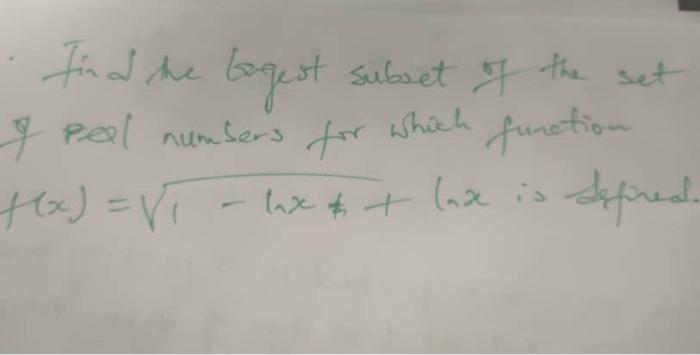 Find the largest subset of the set
of real numbers for which function
f(x) = √1 - ln x + ln x is defined.